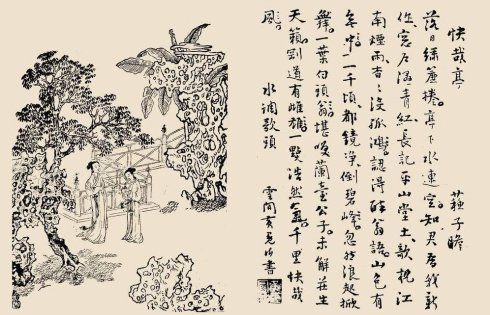 快哉亭 蘇子瞻
落日綉簾捲。亭下水連空。知君為我新
作。窓戶濕青紅。長記平山堂上。欹枕江
南煙雨。杳〻沒孤鴻。認得醉翁語。山色有
無中。一千頃。都鏡淨。倒碧峰。忽然浪起掀
舞。一葉白頭翁。堪咲蘭臺公子。未解莊生
天籟。剛道有雌雄。一點浩然氣。千里快哉
風。 水調歌頭
雲間黃冕仲書